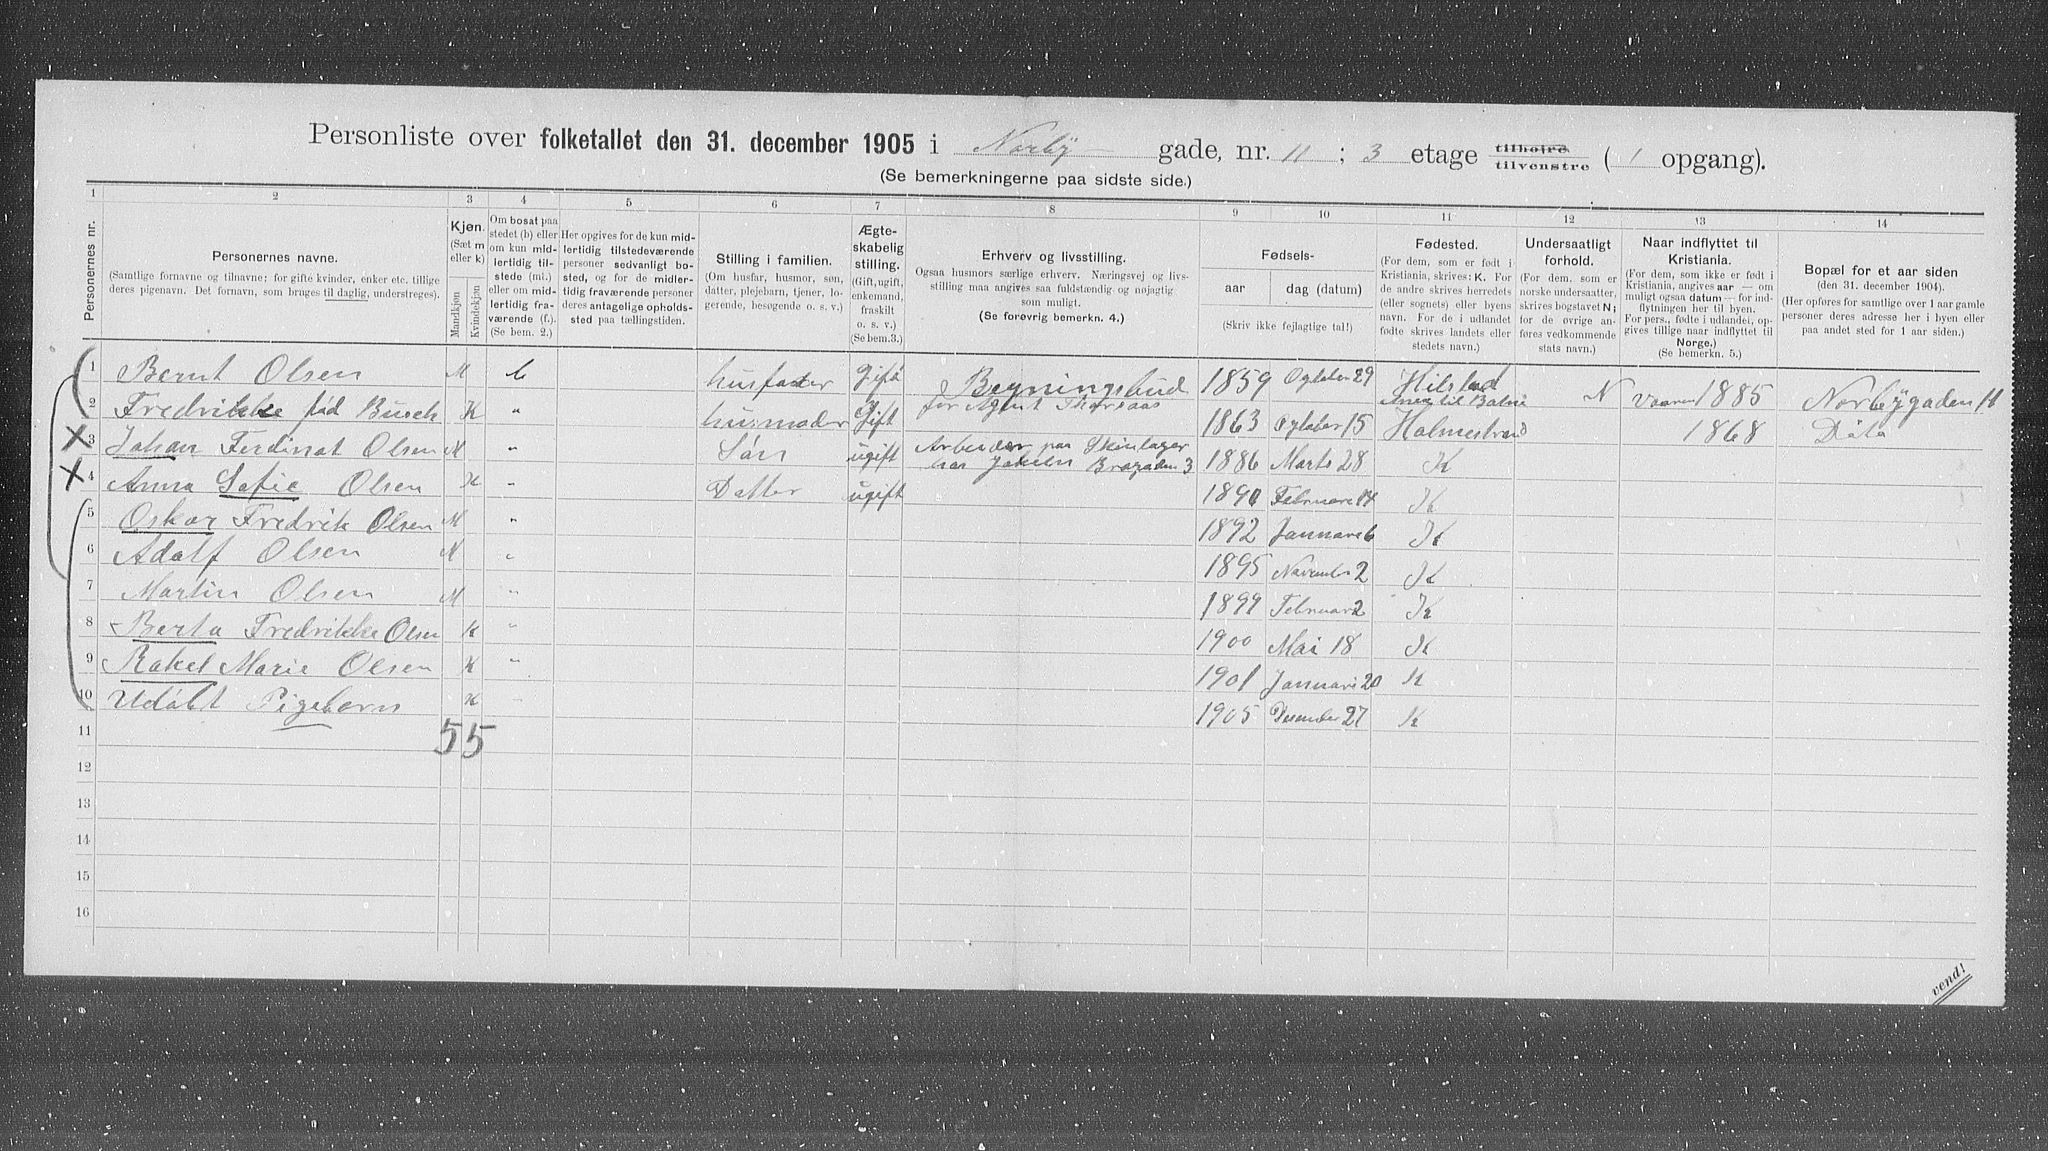 Personliste over folketallet den 31. december 1905 i Norby gade, nr. 11 ; 3 etage tilhøire tilvenstre ( 1 opgang).
(Se bemerkningerne paa sidste side.)
1 2 3 4 5 6 7 8 9 10 11 12 13 14
Personernes nr.
Personernes navne.
(Samtlige fornavne og tilnavne; for gifte kvinder, enker etc. tillige deres pigenavn. Det fornavn, som bruges til daglig, understreges).
Kjøn.
(Sæt m eller k)
Mandkjøn
Kvindekjøn
Om bosat paa stedet (b) eller om kun midlertidig tilstede (mt.) eller om midlertidig fraværende (f.).
(Se bem. 2.)
Her opgives for de kun midlertidig tilstedeværende personer sedvanligt bosted, og for de midlertidig fraværende personer deres antagelige opholdssted paa tællingstiden.
Stilling i familien.
(Om husfar, husmor, søn, datter, plejebarn, tjener, logerende, besøgende o. s. v.)
Ægteskabelig stilling.
(Gift, ugift, enkemand, fraskilt o. s. v.)
(Se bem.3.)
Erhverv og livsstilling.
Ogsaa husmors særlige erhverv. Næringsvej og livsstilling maa angives saa fuldstændig og nøjagtig som muligt.
(Se forøvrig bemerkn. 4.)
Fødsels-
aar
dag (datum)
(Skriv ikke fejlagtige tal!)
Fødested.
(For dem, som er født i Kristiania, skrives: K. For de andre skrives herredets (eller sognets) eller byens navn. For de i udlandet fødte skrives landets eller stedets navn.)
Undersaatligt forhold.
(For dem, som er norske undersaatter, skrives bogstavet N; for de øvrige anføres vedkommende stats navn.)
Naar indflyttet til Kristiania.
(For dem, som ikke er født i Kristiania, angives aar — om muligt ogsaa datum — for indflytningen her til byen. For pers., fødte i udlandet, opgives tillige naar indflyttet til Norge.)
(Se bemerkn. 5.)
Bopæl for et aar siden
(den 31. december 1904).
(Her opføres for samtlige over 1 aar gamle personer deres adresse her i byen eller paa andet sted for 1 aar siden.)
1 Bernt Olsen M b husfader Gift Bygningsbud 1859 Ogtober 29 Hilstad N Vaaren 1885 Norbygaden 11
2 Fredrikke fød Busch K " husmoder Gift for Agent Thorsaas 1863 Ogtober 15 Holmestrand 1868 Dito
3 Johan Ferdinat Olsen M " Søn ugift Arbeider paa Skinlager hos 3 1886 Marts 28 K
4 Anna Sofie Olsen K " Datter ugift 1890 Februare 14 K
5 Oskar Fredrik Olsen M " 1892 Januare 6 K
6 Adolf Olsen M " 1895 November 2 K
7 Martin Olsen M " 1899 Februar 2 K
8 Berta Fredrikke Olsen K " 1900 Mai 18 K
9 Rakel Marie Olsen K " 1901 Januari 20 K
10 Udøbt Pigebarn K " 1905 Desember 27 K
11
55
12
13
14
15
16
vend!